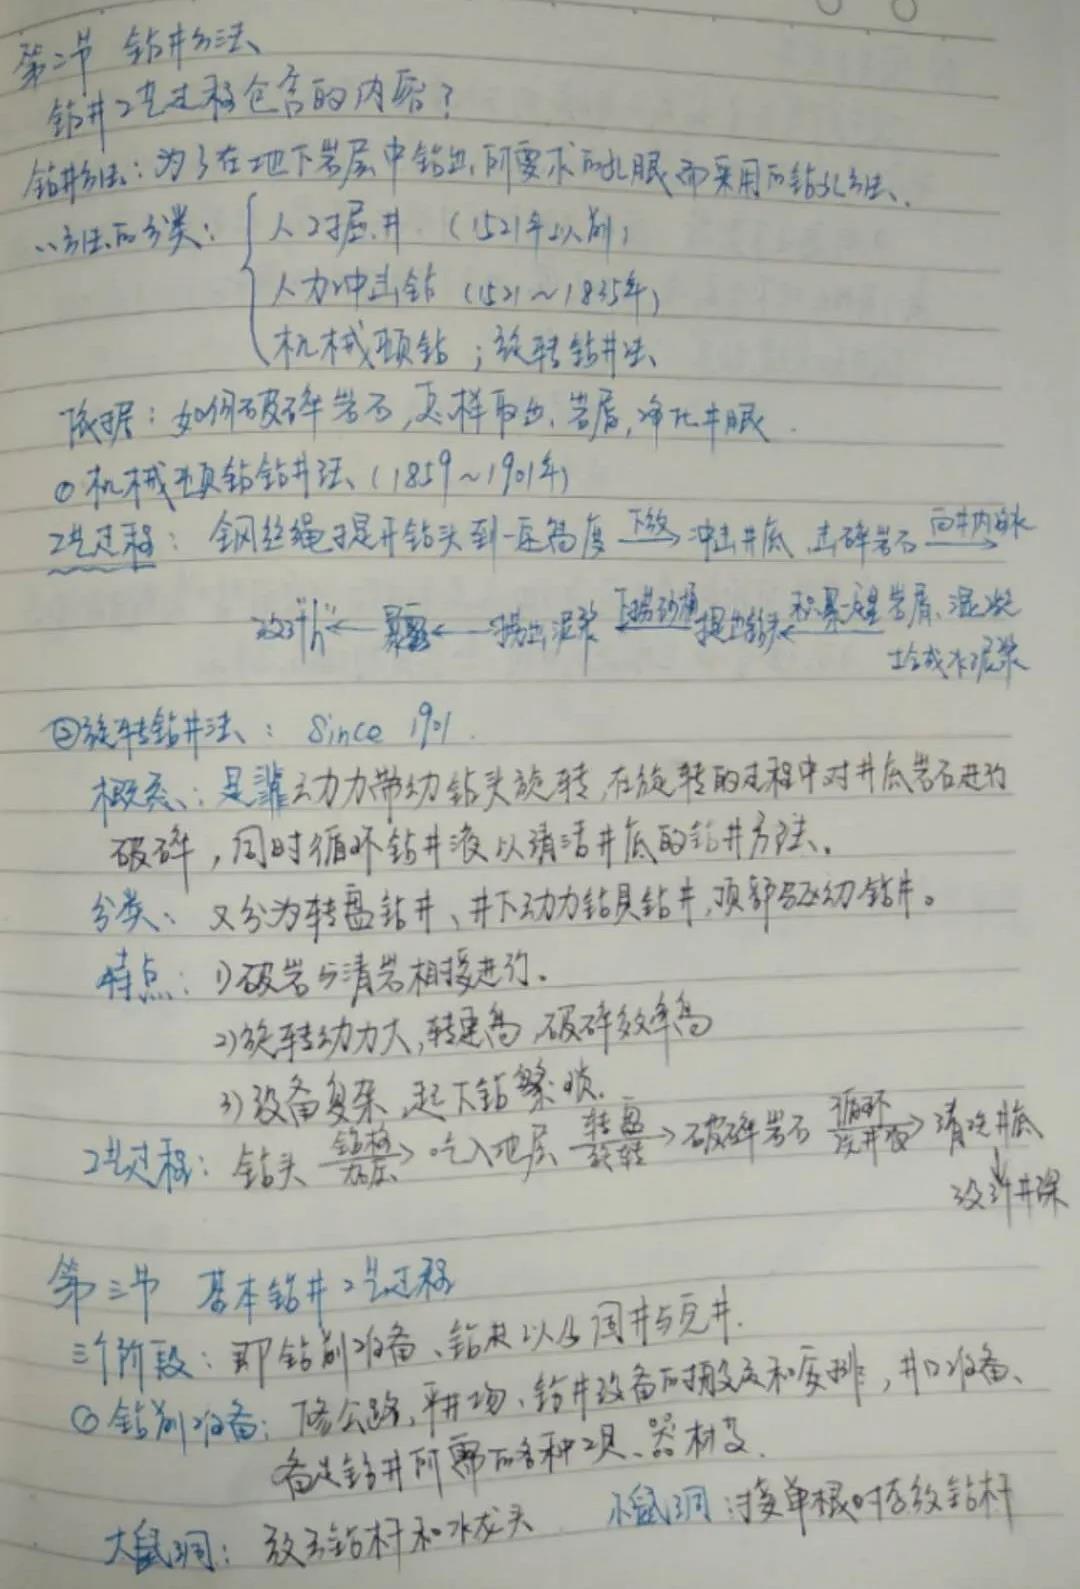 第二节 钻井方法
钻井工艺过程包含的内容?
钻井方法:为了在地下岩层中钻出所要求的孔眼而采用的钻孔方法、
方法的分类: 人工掘井 (1521年以前)
人力冲击钻 (1521～1835年)
机械顿钻;旋转钻井法
依据:如何破碎岩石,怎样取出岩屑,净化井眼.
① 机械顿钻钻井法(1859～1901年)
工艺过程: 钢丝绳提升钻头到一定高度 下放→ 冲击井底 击碎岩石 向井内
积累一定量岩屑、混凝
设计"h"← 重复 ← 捞出泥浆 ←下捞砂筒 提出钻头←
水泥浆
②旋转钻井法: Since 1901.
概念:是靠动力带动钻头旋转,在旋转的过程中对井底岩石进行
破碎,同时循环钻井液以清洁井底的钻井方法。
分类: 又分为转盘钻井、井下动力钻具钻井,顶部驱动钻井。
特点: 1)破岩与清岩相接进行。
2)旋转动力大,转速高,破碎效率高
3)设备复杂,起下钻繁琐.
工艺过程: 钻头 钻柱加压→ 吃入地层 转盘旋转→ 破碎岩石 循环洗井液→ 清洗井底
↓
设计井深
第三节 基本钻井工艺过程
三个阶段: 即钻前准备、钻进以及固井与完井.
① 钻前准备: 修公路,平井场、钻井设备的搬迁和安排,井口准备、
备足钻井所需的各种工具、器材及.
大鼠洞: 放方钻杆和水龙头 小鼠洞:接单根时存放钻杆